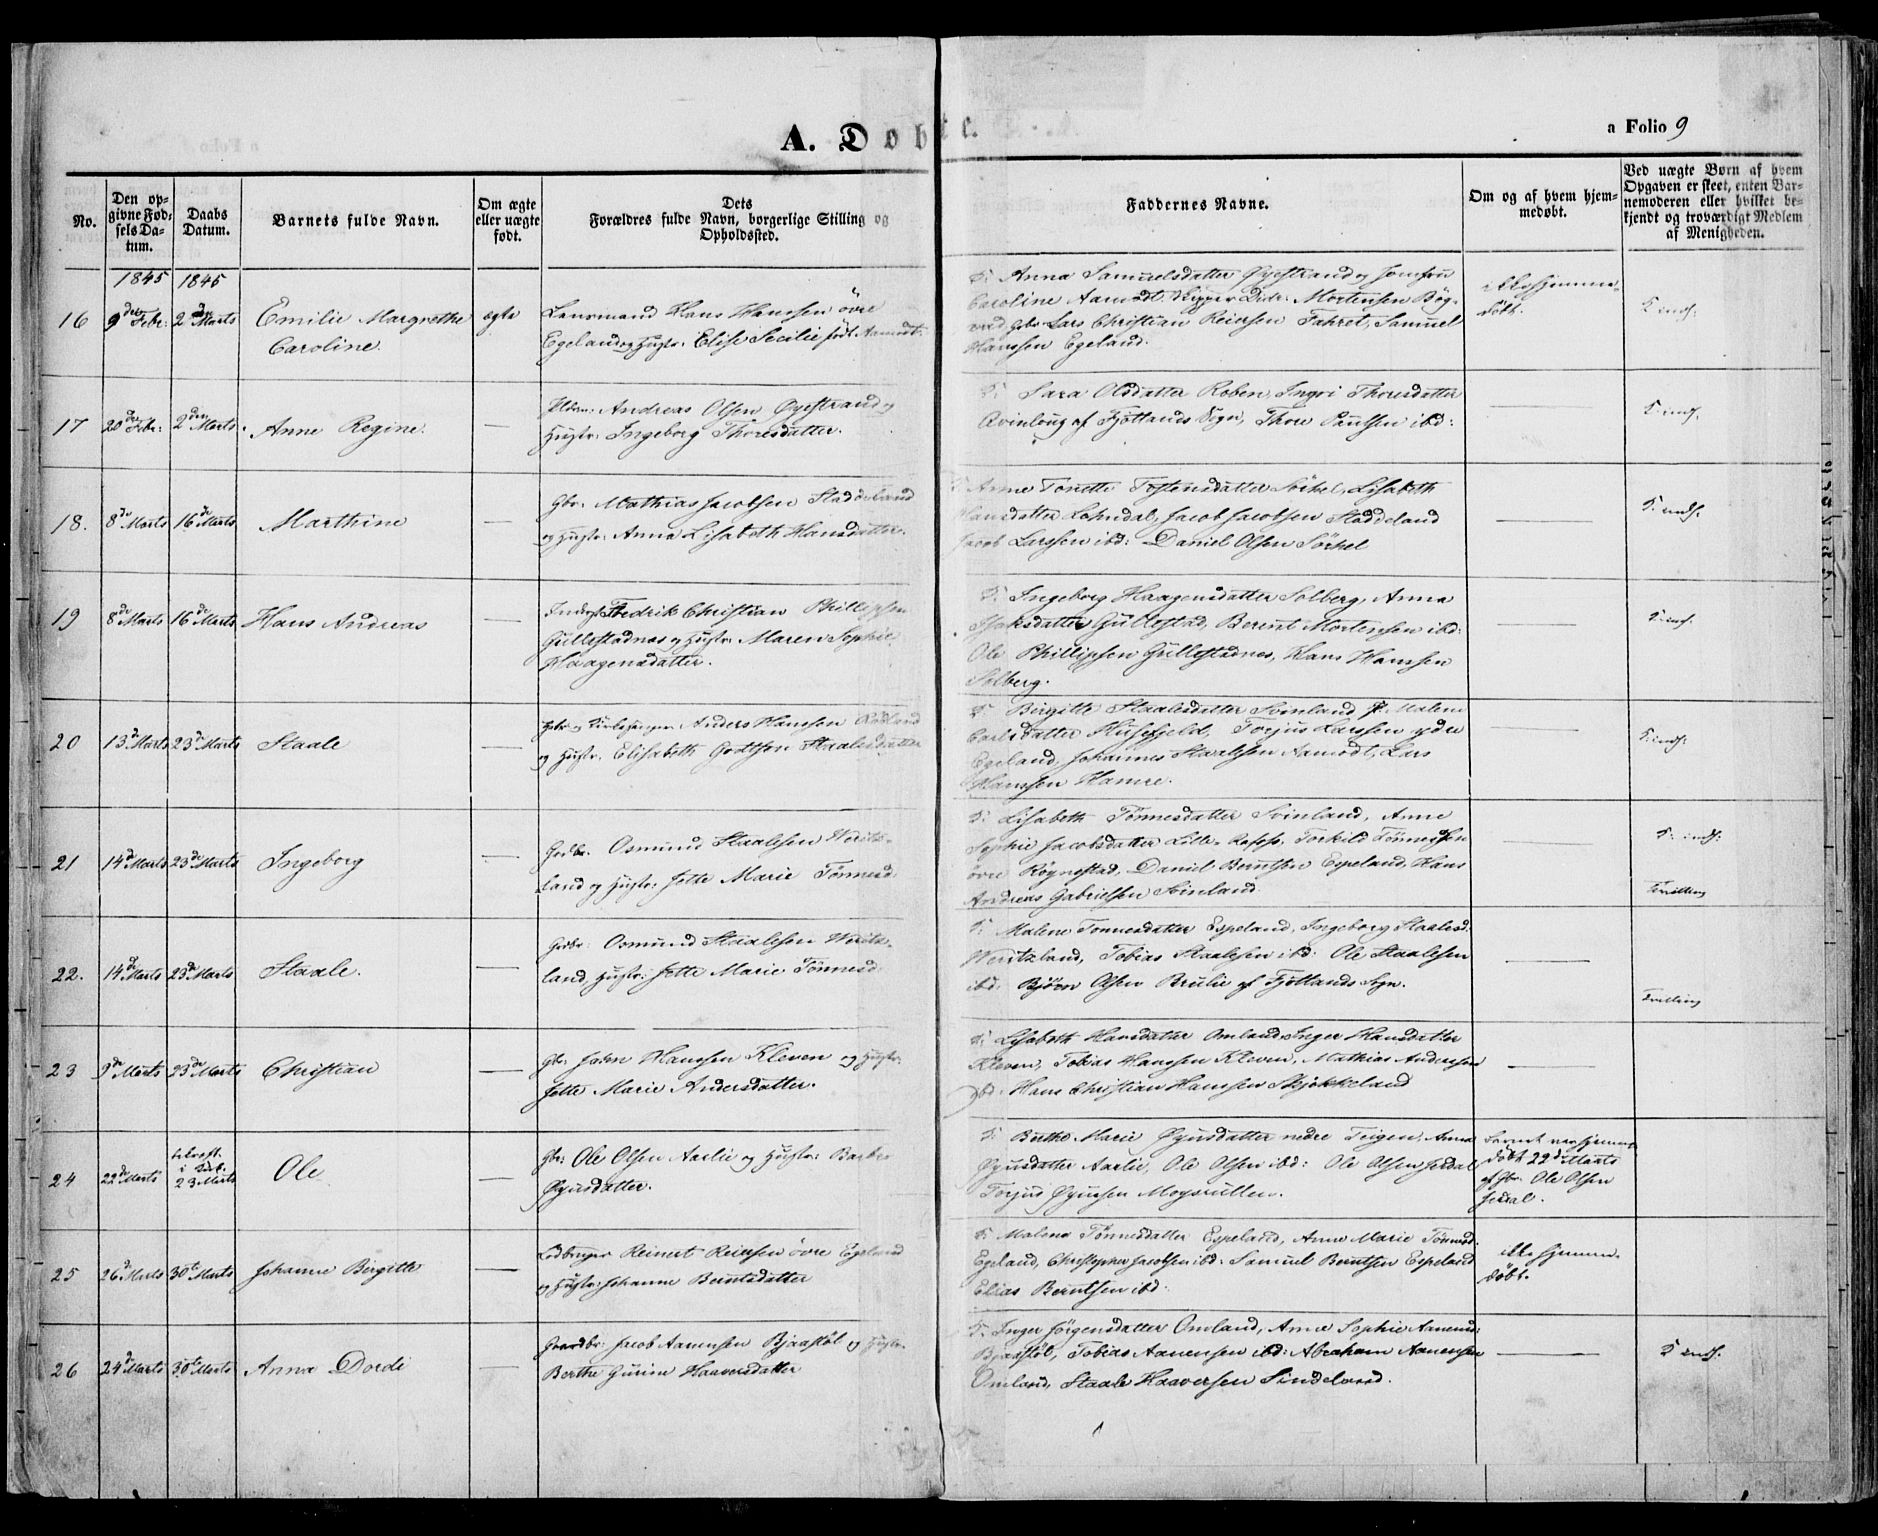 A. Døbte.
a Folio 9
No.
Den op-
givne Fød-
sels Da-
tum.
Daabs
Datum.
Barnets fulde Navn.
Om ægte
eller uægte
født.
Dets
Forældres fulde Navn, borgerlige Stilling og
Opholdssted.
Faddernes Navne.
Om og af hvem hjem-
medøbt.
Ved uægte Børn af hvem
Opgaven er skeet, enten Bar-
nemoderen eller hvilket be-
kjendt og troværdigt Medlem
af Menigheden.
1845 1845
16 9de Febr: 2den Marts Emilie Margrethe
Caroline.
ægte
Hans Hanssen övre
Egeland og Hustr: Elise Secilie født Aamodt.
F: Anna Samuelsdatter Øyestrand og
Caroline Aamodt, Skipper Didr: Mortensen
Gbr Lars Christian Reiersen Fahret, Samuel
Hanssen Egeland.
ikke hjemme-
døbt.
T: inds:
17 20de Febr: 2den Marts. Anne Regine. —
Andreas Olsen Øyestrand og
Hustr: Ingeborg Thoresdatter.
F: Sara Olsdatter Roben, Ingri Thoresdatter
Qvinlaug af Fjotlands Sogn, Thore Paulsen ibd:
—
T: inds.
18. 8de Marts 16de Marts Marthine —
Gbr: Mathias Jacobsen Staddeland
og Hustr: Anna Lisabeth Hansdatter.
F: Anne Tonette Tostensdatter Sörhel, Lisabeth
Hansdatter Lohndal, Jacob Jacobsen Staddeland
Jacob Larssen ibd: Daniel Olsen Sörhel
—
T: inds:
19 8de Marts 16de Marts Hans Andreas —
Inderst Fredrik Christian Phillipsen
Gullestadnes og Hustr: Maren Sophie
Haagensdatter.
F: Ingeborg Haagensdatter Solberg, Anna
Isaksdatter Gullestad, Berent Mortensen ibd:
Ole Phillipsen Gullestadnes, Hans Hanssen
Solberg.
—
T: inds.
20 13de Marts 23de Marts Staale —
Gbr og Kirkesanger Anders Hanssen Rödland
og Hustr. Elisabeth Staalesdatter
F: Birgitte Staalesdatter Svinland, Malene
Carlsdatter Husefjeld, Torjus Larssen ydre
Egeland, Johannes Staalesen Aamodt, Lars
Hanssen Hamre.
—
T: inds:
21 14de Marts 23de Marts Ingeborg —
Grdbr. Osmund Staalesen Werits-
land og Hustr: Jette Marie Tönnesd.
F: Lisabeth Tönnesdatter Svinland, Anne
Sophie Jacobsdatter Lille- Torkild Tönnessen
övre Röynestad, Daniel Berntsen Espeland, Hans
Andreas Gabrielsen Svinland.
—
T: inds:
Tvilling
22. 14de Marts 23de Marts Staale. —
Grdbr: Osmund Staalesen Werits-
land, Hustr: Jette Marie Tönnesd.
F: Malene Tönnesdatter Espeland, Ingeborg Staalesd:
Weritzland, Tobias Staalesen ibd: Ole Staalesen
ibd: Bjørn Olsen Brulie af Fjotlands Sogn.
—
Tvilling
23 9de Marts 23de Marts Christian —
Gbr: Jahn Hanssen Kleven og Hustr:
Jette Marie Andersdatter.
F: Lisabeth Hansdatter Omland, Inger Hansdatter
Kleven, Tobias Hanssen Kleven, Mathias Anderssen
ibd: Hans Christian Hanssen Skjekkeland
—
24 22de Marts
i Kirk.
23 Marts
Ole —
Gbr: Ole Olsen Aaslie og Hustr: Barbro
Øyusdatter.
F: Berthe Marie Øyusdatter nedre Teigen, Anna
Øyusdatter Aaslie, Ole Olsen ibd: Ole Olsen
Torjus Øyusen
Barnet var hjemme-
døbt 22de Marts
af Gbr: Ole Olsen
25 26de Marts 30te Marts Johanne Birgitte —
Reinert Reiersen övre Egeland
og Hustr: Johanne Berntsdatter
F: Malene Tönnesdatter Espeland, Anne Marie Tönnesd:
Egeland, Christopher Jacobsen ibd: Samuel Berntsen Espeland
Elias Berntsen ibd:
ikke hjemme-
døbt.
26 24de Marts 30te Marts Anna Dordi —
Gaardbr: Jacob Aanensen Bjaastöl og Hustr.
Berthe Gurine Haaversdatter
F: Inger Jörgensdatter Omland, Anne Sophie Aanensd:
Bjaastöl, Tobias Aanensen ibd: Abraham Aanensen
Omland, Staale Haaversen Sindeland.
—
T inds.